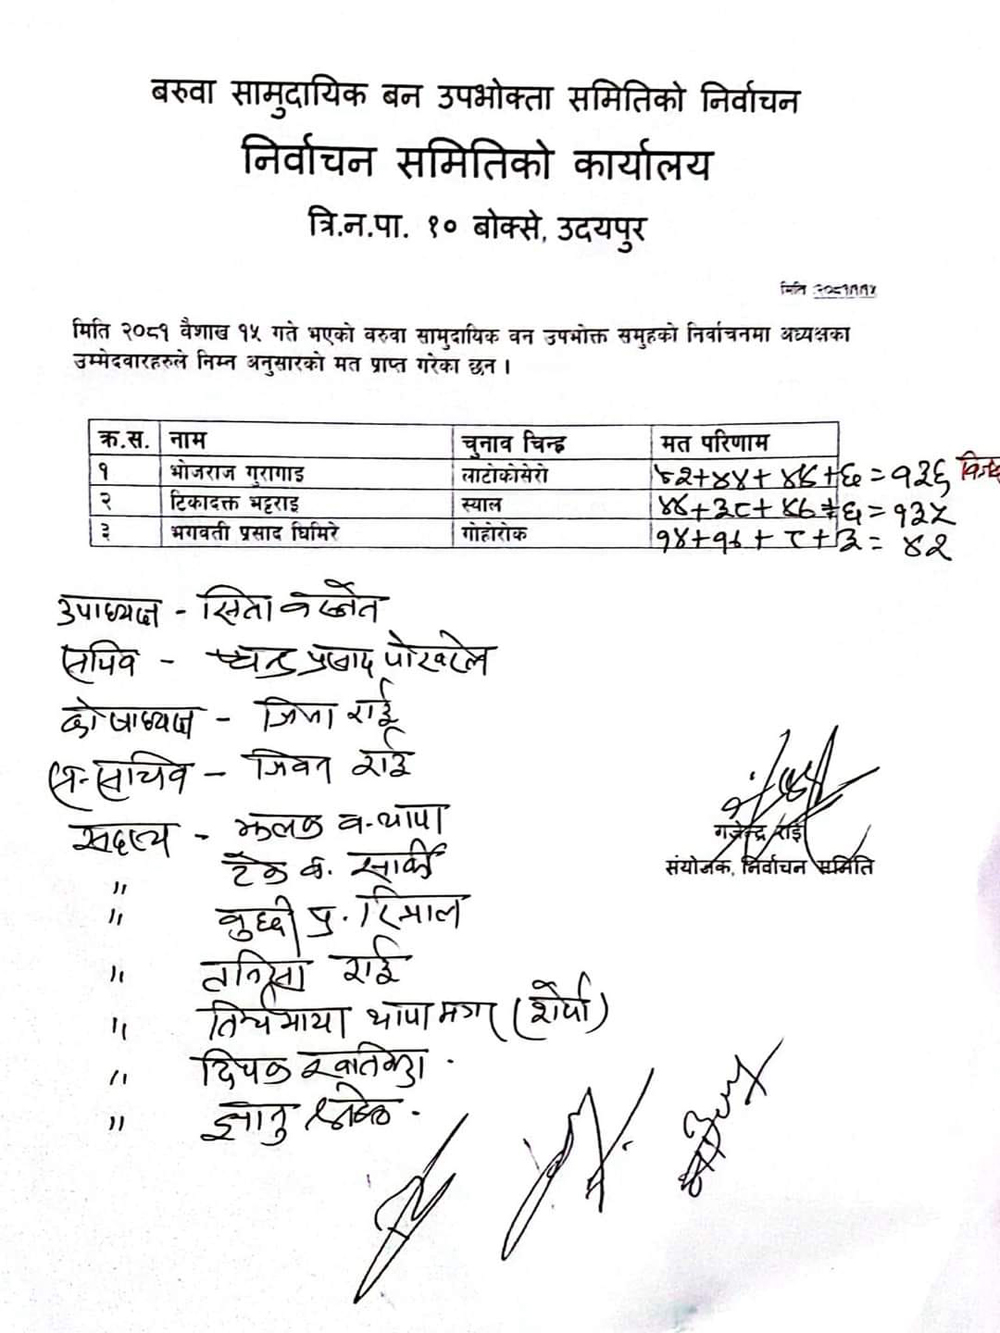 बरुवा सामुदायिक बन उपभोक्ता समितिको निर्वाचन
निर्वाचन समितिको कार्यालय
त्रि.न.पा. १० बोक्से, उदयपुर
मिति
मिति २०८१ वैशाख १५ गते भएको वरुवा सामुदायिक वन उपभोक्त समुहको निर्वाचनमा अध्यक्षका
उम्मेदवारहरुले निम्न अनुसारको मत प्राप्त गरेका छन ।
क्र.स. नाम चुनाव चिन्ह मत परिणाम
१ भोजराज गुरागाइ लाटोकोसेरो = १३६
२ टिकादक्त भट्टराइ स्याल = १३५
३ भगवती प्रसाद घिमिरे गोहोरोक = ४२
उपाध्यक्ष - सिता बस्नेत
सचिव - चन्द्र प्रसाद पोखरेल
कोषाध्यक्ष - जिना राई
स-सचिव - जिवन राई
सदस्य - झलक ब. थापा
" टेक ब. सार्की
" बुद्धी प्र. रिजाल
" राई
" थापा मगर (शेर्पा)
" दिपक
" ज्ञानु श्रेष्ठ.
गजेन्द्र राई
संयोजक, निर्वाचन समिति